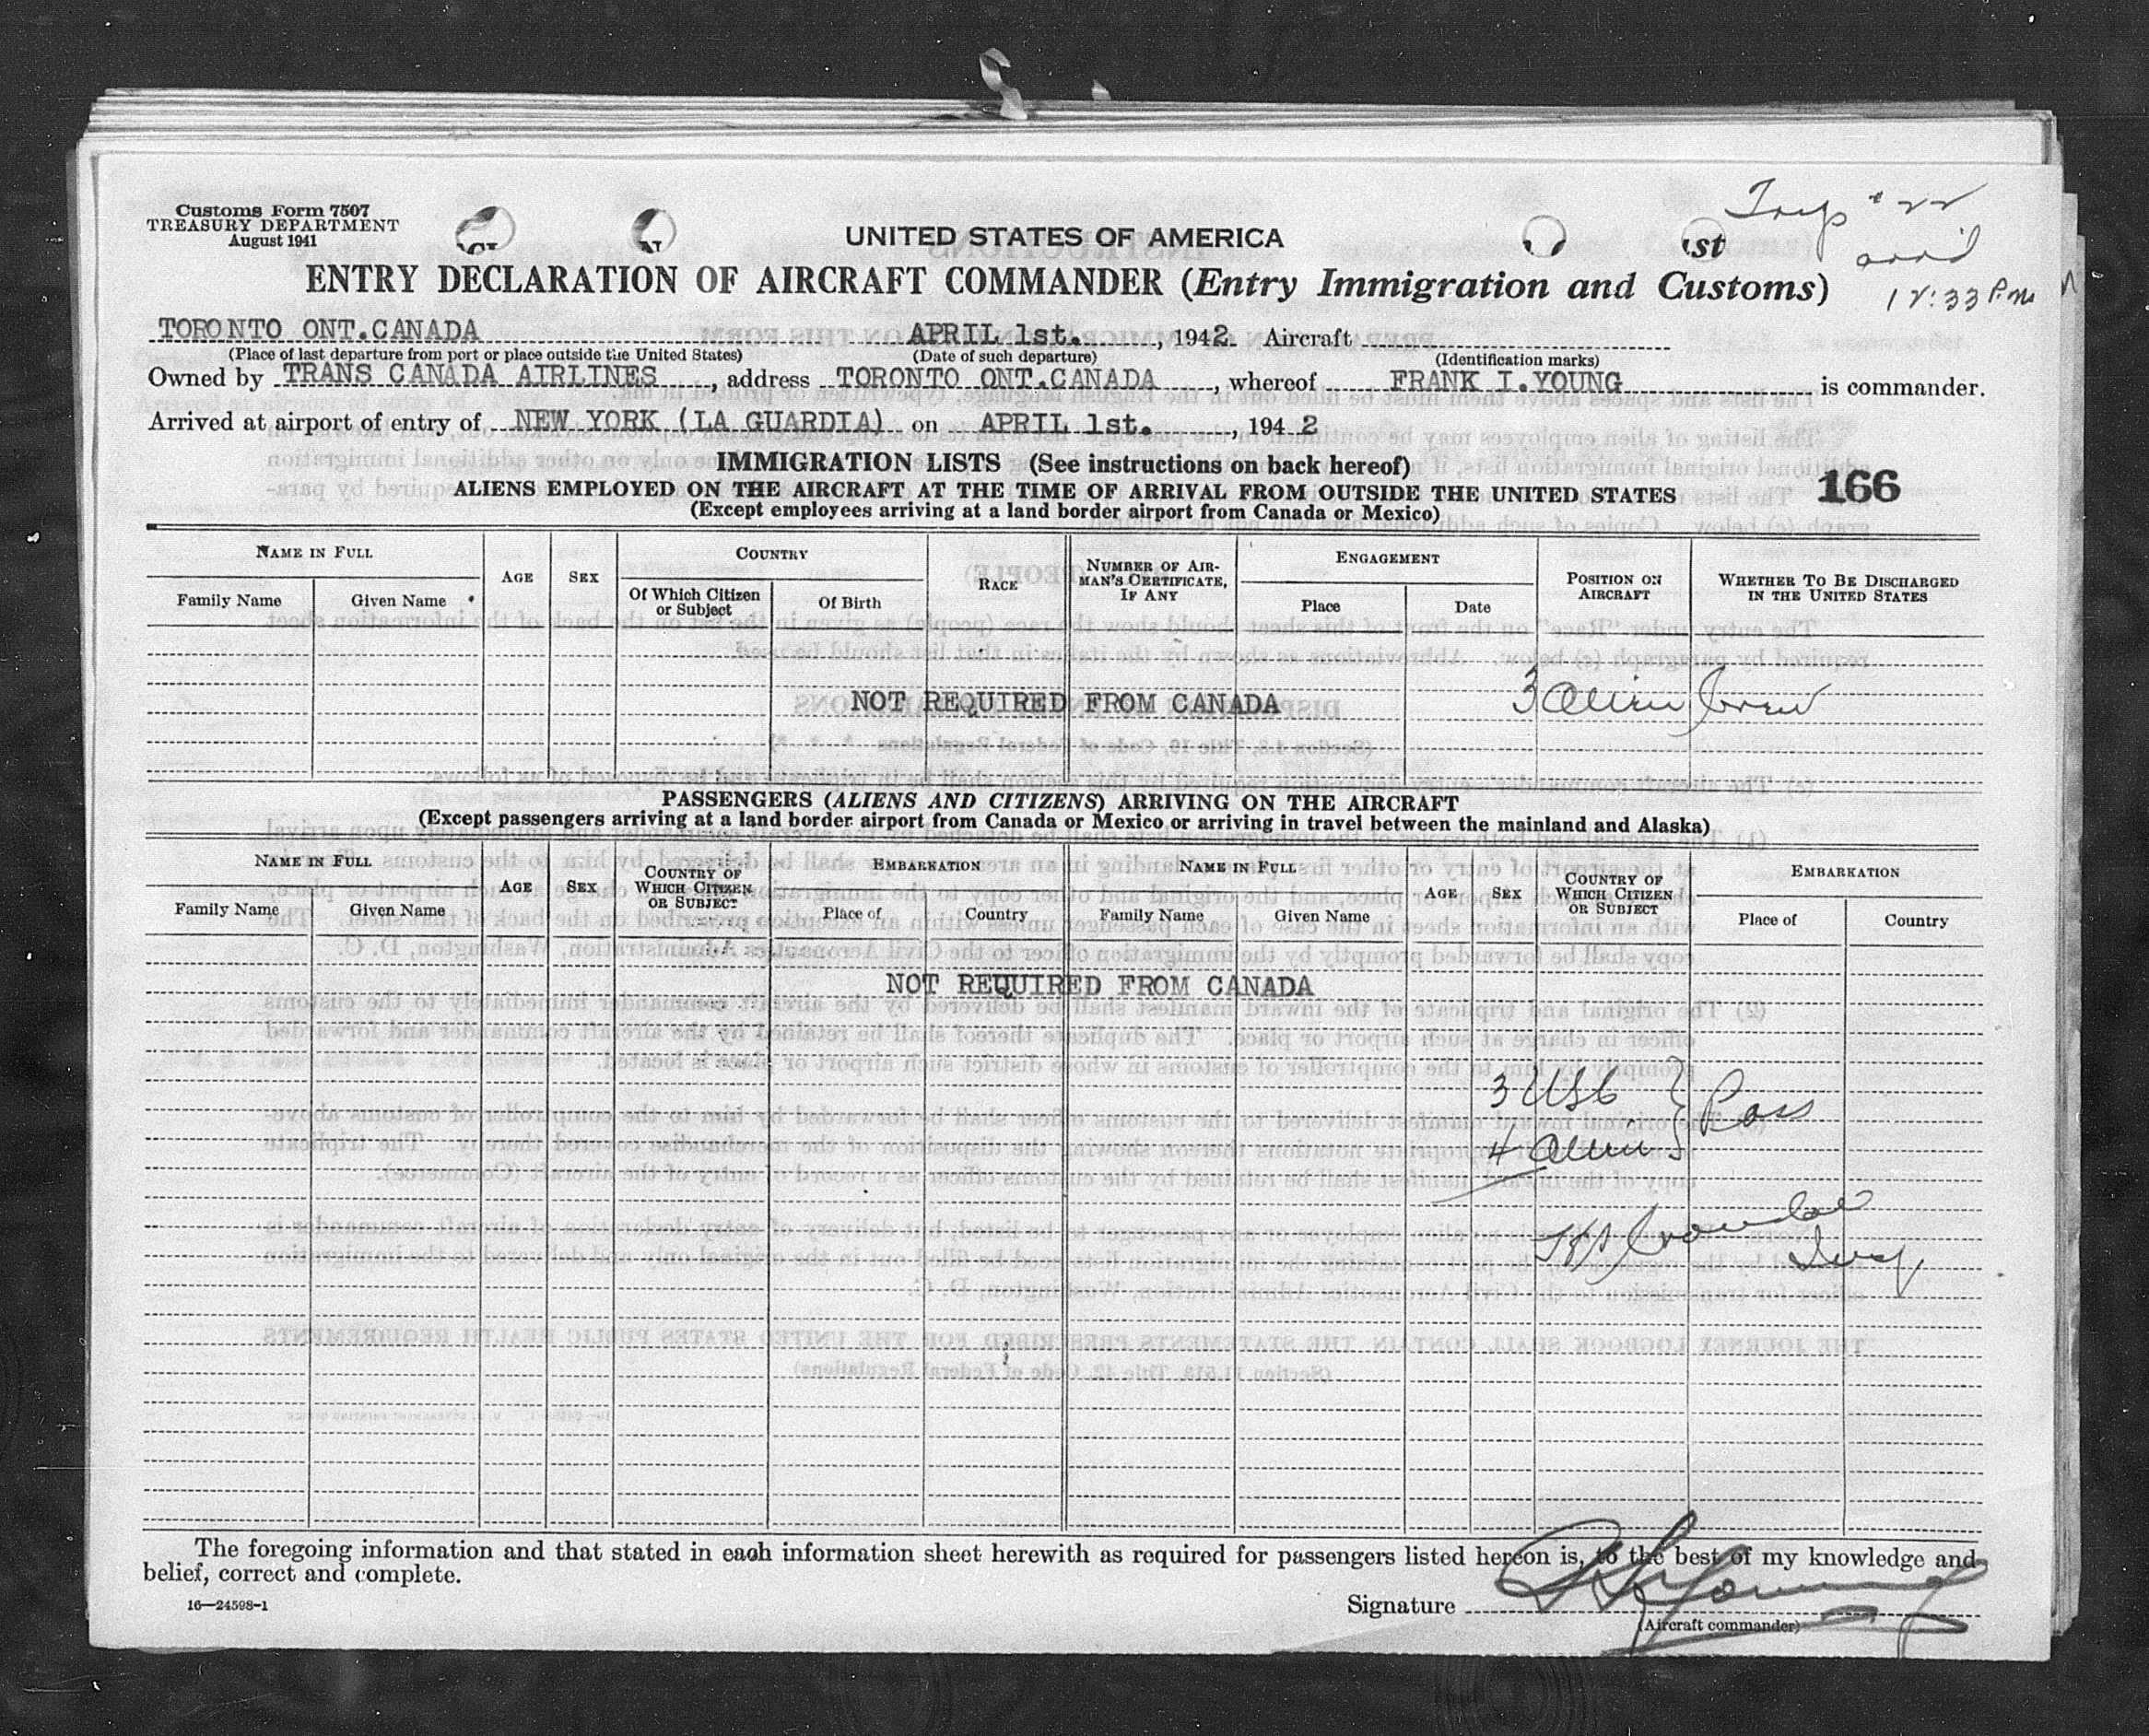 Customs Form 7507
TREASURY DEPARTMENT
August 1941
Trip # 22
arr'd
12:33 P.m
UNITED STATES OF AMERICA
st
ENTRY DECLARATION OF AIRCRAFT COMMANDER (Entry Immigration and Customs)
TORONTO ONT.CANADA APRIL 1st. , 1942. Aircraft
(Place of last departure from port or place outside the United States) (Date of such departure) (Identification marks)
Owned by TRANS CANADA AIRLINES , address TORONTO ONT.CANADA , whereof FRANK I.YOUNG is commander.
Arrived at airport of entry of NEW YORK (LA GUARDIA) on APRIL 1st. , 194 2
IMMIGRATION LISTS (See instructions on back hereof)
ALIENS EMPLOYED ON THE AIRCRAFT AT THE TIME OF ARRIVAL FROM OUTSIDE THE UNITED STATES 166
(Except employees arriving at a land border airport from Canada or Mexico)
NAME IN FULL AGE SEX COUNTRY RACE NUMBER OF AIRMAN'S CERTIFICATE, IF ANY ENGAGEMENT POSITION ON AIRCRAFT WHETHER TO BE DISCHARGED IN THE UNITED STATES
Family Name Given Name Of Which Citizen or Subject Of Birth Place Date
NOT REQUIRED FROM CANADA 3 alien crew
PASSENGERS (ALIENS AND CITIZENS) ARRIVING ON THE AIRCRAFT
(Except passengers arriving at a land border airport from Canada or Mexico or arriving in travel between the mainland and Alaska)
NAME IN FULL AGE SEX COUNTRY OF WHICH CITIZEN OR SUBJECT EMBARKATION NAME IN FULL AGE SEX COUNTRY OF WHICH CITIZEN OR SUBJECT EMBARKATION
Family Name Given Name Place of Country Family Name Given Name Place of Country
NOT REQUIRED FROM CANADA
3 USC } Pass
4 alien
The foregoing information and that stated in each information sheet herewith as required for passengers listed hereon is, to the best of my knowledge and
belief, correct and complete.
16—24598-1
Signature
(Aircraft commander)